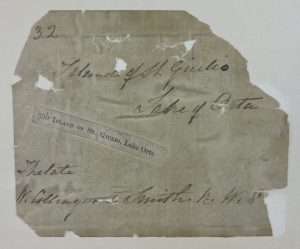 32
Island of St. Giulio
Lake of Orta
325 ISLAND OF ST. GIULIO, LAKE ORTA.
The late
W. Collingwood Smith R. W. S